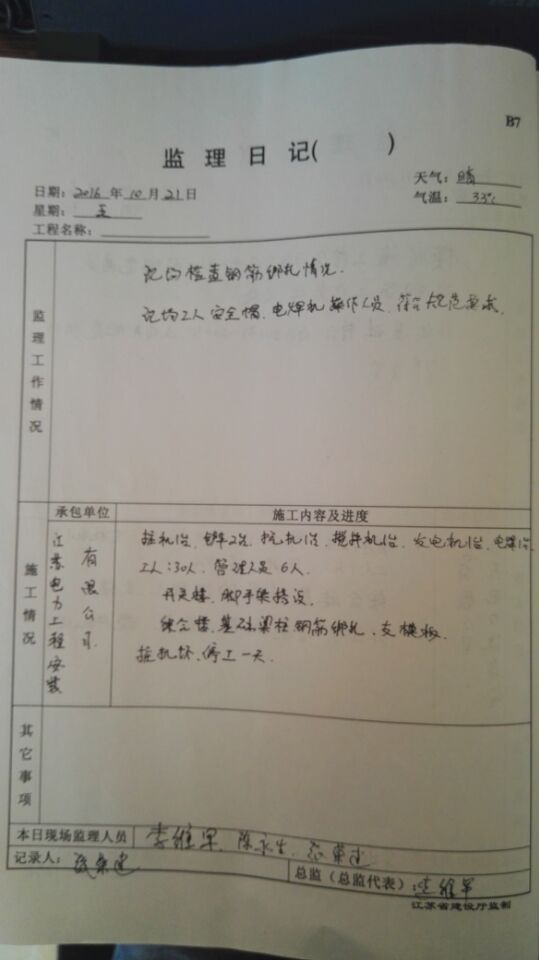 B7
监理日记( )
日期: 2016 年 10 月 21 日
天气: 晴
星期: 五
气温: 33℃
工程名称:
监理工作情况
现场检查钢筋绑扎情况.
现场工人安全帽、电焊机操作人员、符合规范要求.
施工情况
承包单位
施工内容及进度
江苏电力工程安装
有限公司
挖机1台、铲车2台、挖机1台、搅拌机1台、发电机1台、电焊1台
工人:30人、管理人员6人.
开关楼、脚手架搭设.
综合楼、基础梁柱钢筋绑扎、支模板.
挖机坏、停工一天.
其它事项
本日现场监理人员
李维军、陈永生、
记录人:
总监(总监代表):李维军
江苏省建设厅监制